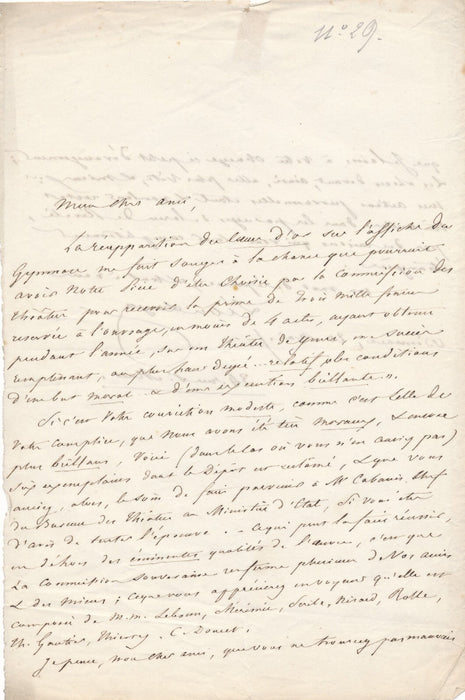 N° 29.
Mon cher ami,
La réapparition du Cœur d'or sur l'affiche du
Gymnase me fait songer à la chance que pourrait
avoir notre pièce d'être choisie par la Commission des
théâtres pour recevoir la prime de trois mille francs
réservée à l'ouvrage, en moins de 4 actes, ayant obtenu
pendant l'année, sur un Théâtre de genre un succès
remplissant, au plus haut degré.. relatif, les conditions
d'un but moral & d'une exécution brillante ".
Si c'est votre conviction modeste, comme c'est celle de
votre complice, que nous avons été très moraux, & encore
plus brillans, voici (dans le cas où vous n'en auriez pas)
six exemplaires dont le dépôt est entamé, & que vous
auriez, alors, le soin de faire parvenir à Mr Cabanis, chef
du Bureau des Théâtres au Ministère d'Etat, si vous êtes
d'avis de tenter l'épreuve. - Ce qui peut la faire réussir,
en dehors des éminentes qualités de l'œuvre, c'est que
la Commission souveraine renferme plusieurs de vos amis
& des miens ; ce que vous apprécierez en voyant qu'elle est
composée de M.M. Lebrun, Mérimée, Scribe, Nisard, Rolle,
Th. Gautier, Thierry, C. Doucet.
Je pense, mon cher ami, que vous ne trouverez pas mauvais